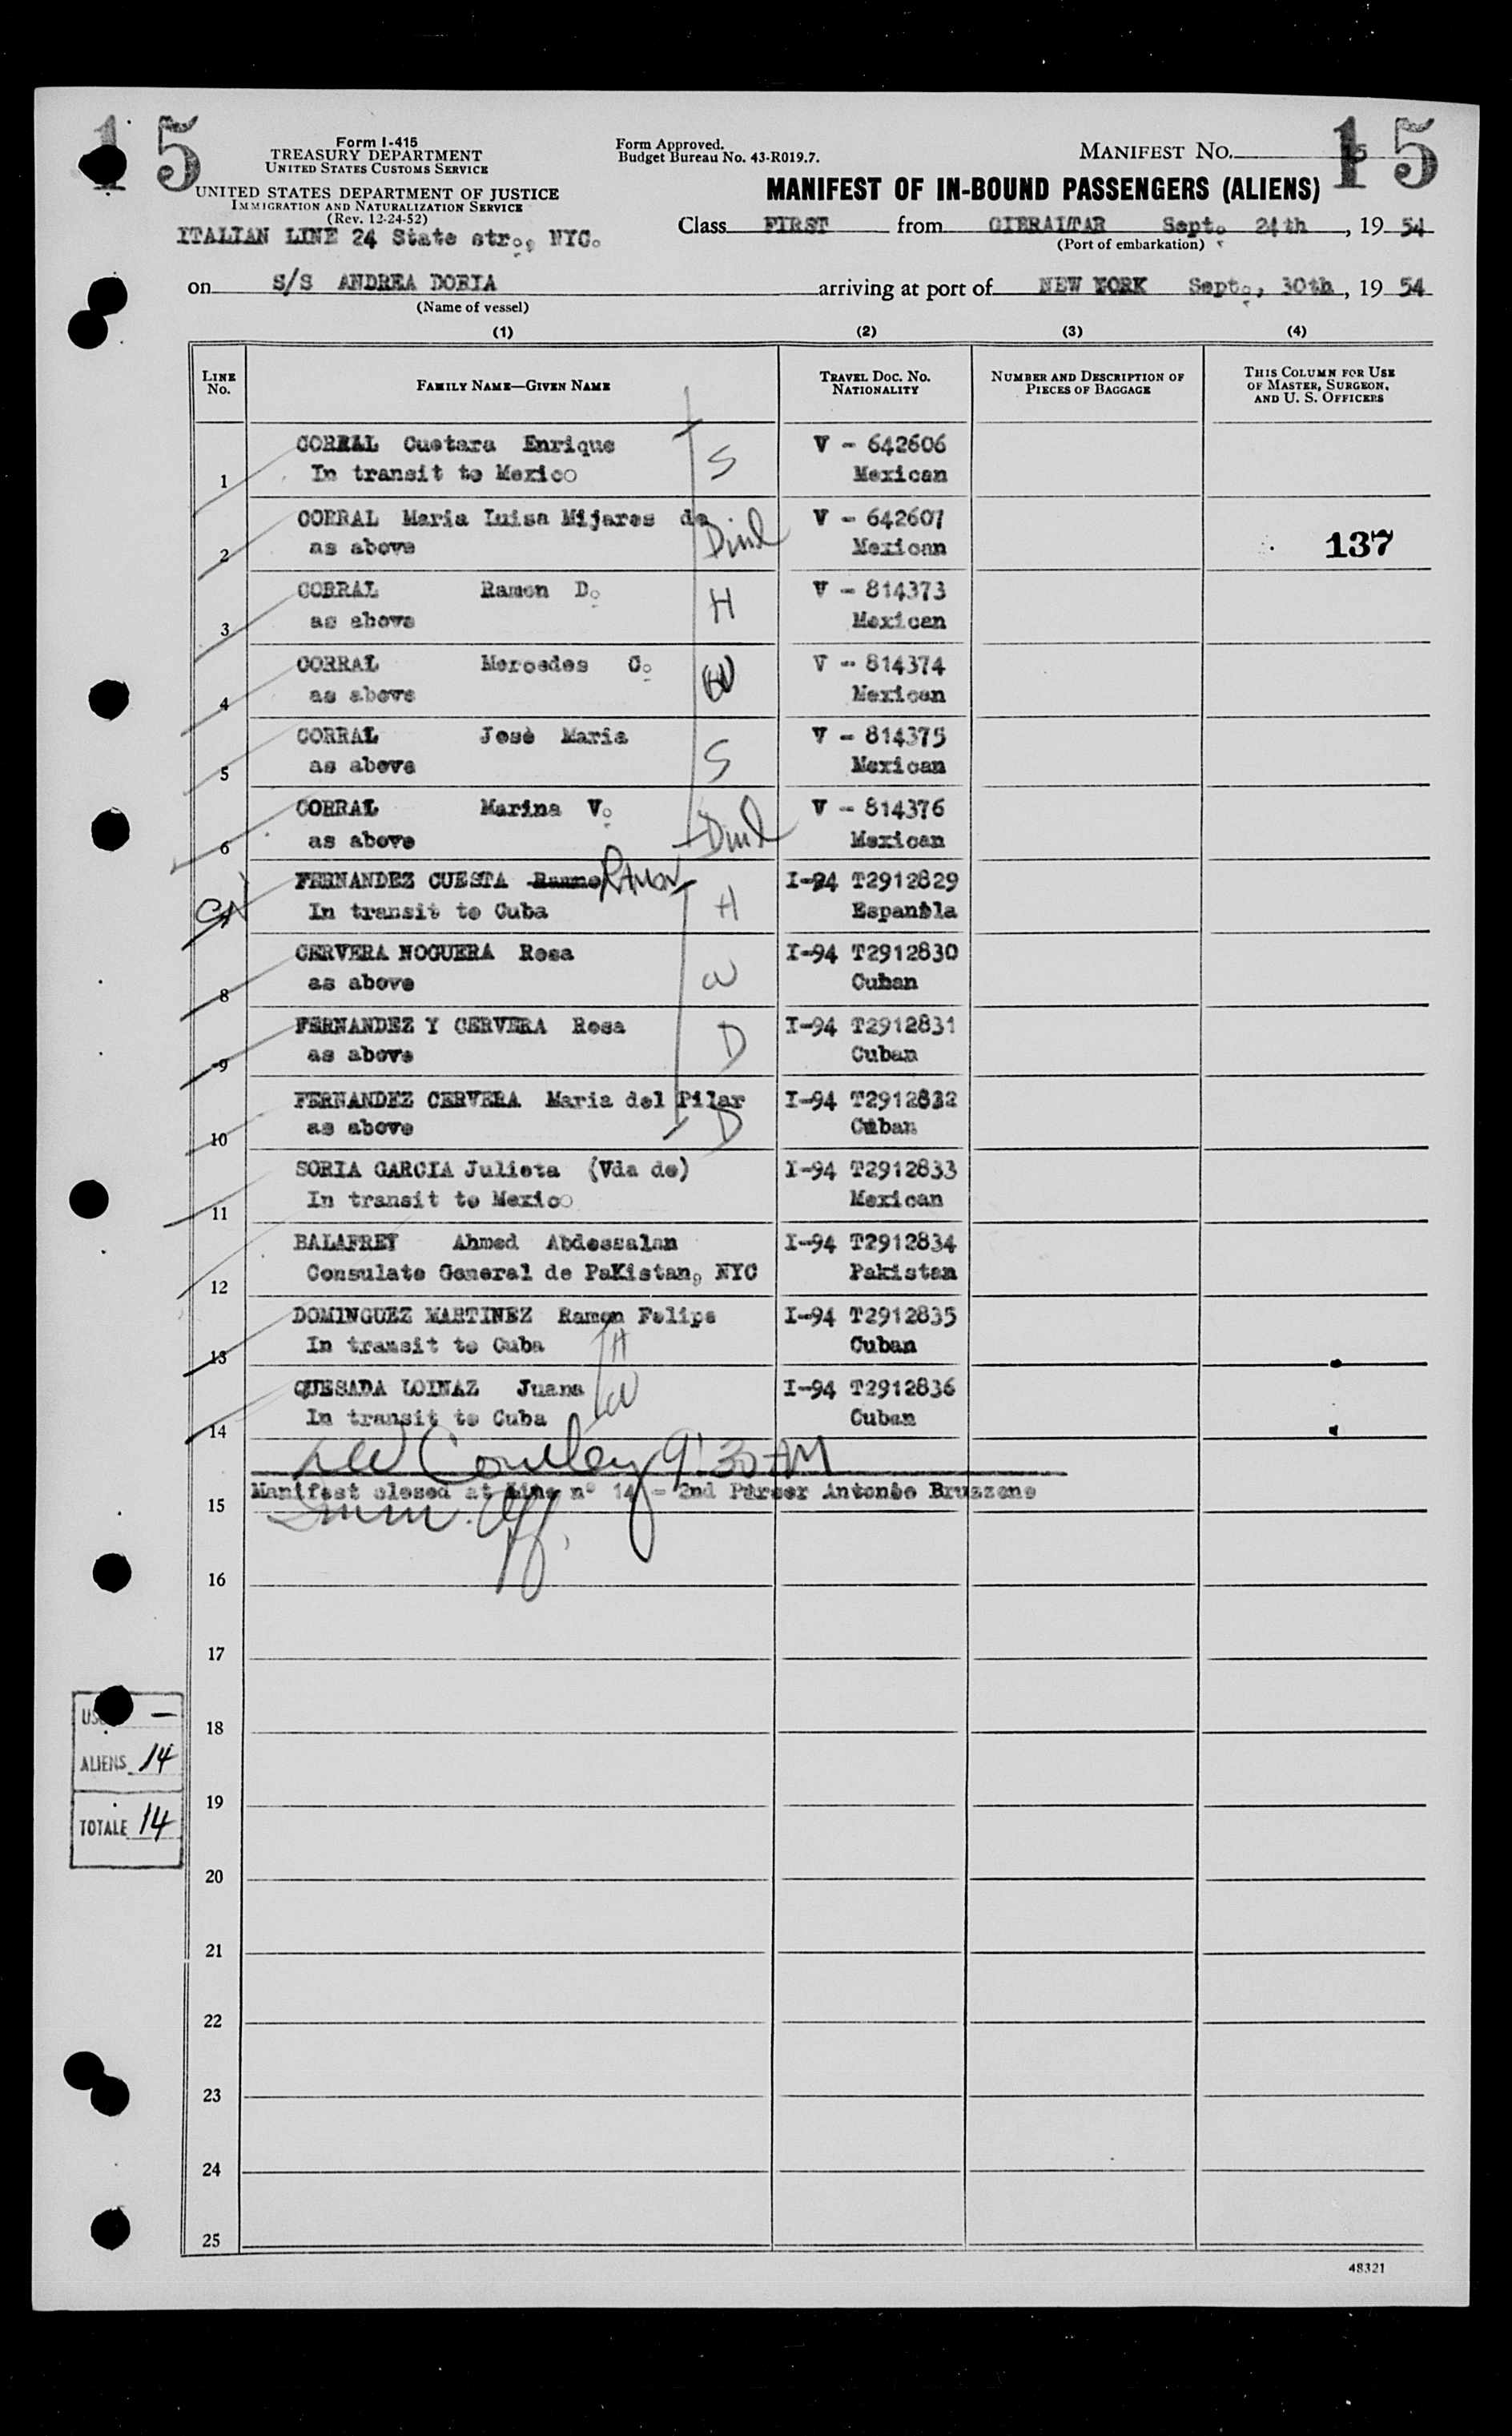 15
15
Form I-415
TREASURY DEPARTMENT
UNITED STATES CUSTOMS SERVICE
UNITED STATES DEPARTMENT OF JUSTICE
IMMIGRATION AND NATURALIZATION SERVICE
(Rev. 12-24-52)
ITALIAN LINE 24 State str., NYC.
Form Approved.
Budget Bureau No. 43-R019.7.
MANIFEST NO. 15
MANIFEST OF IN-BOUND PASSENGERS (ALIENS)
Class FIRST from GIBRALTAR Sept. 24th, 19 54
(Port of embarkation)
on S/S ANDREA DORIA arriving at port of NEW YORK Sept., 30th, 19 54
(Name of vessel)
(1) (2) (3) (4)
LINE No. FAMILY NAME—GIVEN NAME TRAVEL DOC. NO. NATIONALITY NUMBER AND DESCRIPTION OF PIECES OF BAGGAGE THIS COLUMN FOR USE OF MASTER, SURGEON, AND U. S. OFFICERS
CORRAL Cuetara Enrique V - 642606
1 In transit to Mexico S Mexican
CORRAL Maria Luisa Mijares de V - 642607
2 as above Dinl Mexican 137
CORRAL Ramon D. V - 814373
3 as above H Mexican
CORRAL Mercedes C. V - 814374
4 as above W Mexican
CORRAL Josè Maria V - 814375
5 as above S Mexican
CORRAL Marina V. V - 814376
6 as above Dinl Mexican
FERNANDEZ CUESTA RAMON I-94 T2912829
7 In transit to Cuba H Espanola
CERVERA NOGUERA Rosa I-94 T2912830
8 as above W Cuban
FERNANDEZ Y CERVERA Rosa I-94 T2912831
9 as above D Cuban
FERNANDEZ CERVERA Maria del Pilar I-94 T2912832
10 as above D Cuban
SORIA GARCIA Julieta (Vda de) I-94 T2912833
11 In transit to Mexico Mexican
BALAFREY Ahmed Abdessalan I-94 T2912834
12 Consulate General de PaKistan, NYC Pakistan
DOMINGUEZ MARTINEZ Ramon Felipe I-94 T2912835
13 In transit to Cuba H Cuban
QUESADA LOINAZ Juana I-94 T2912836
14 In transit to Cuba W Cuban
9:30 AM
15 Manifest closed at Line n° 14 - 2nd Purser Antonio Bruzzone
Imm. Off.
16
17
18
19
20
21
22
23
24
25
ALIENS 14
TOTALE 14
48321